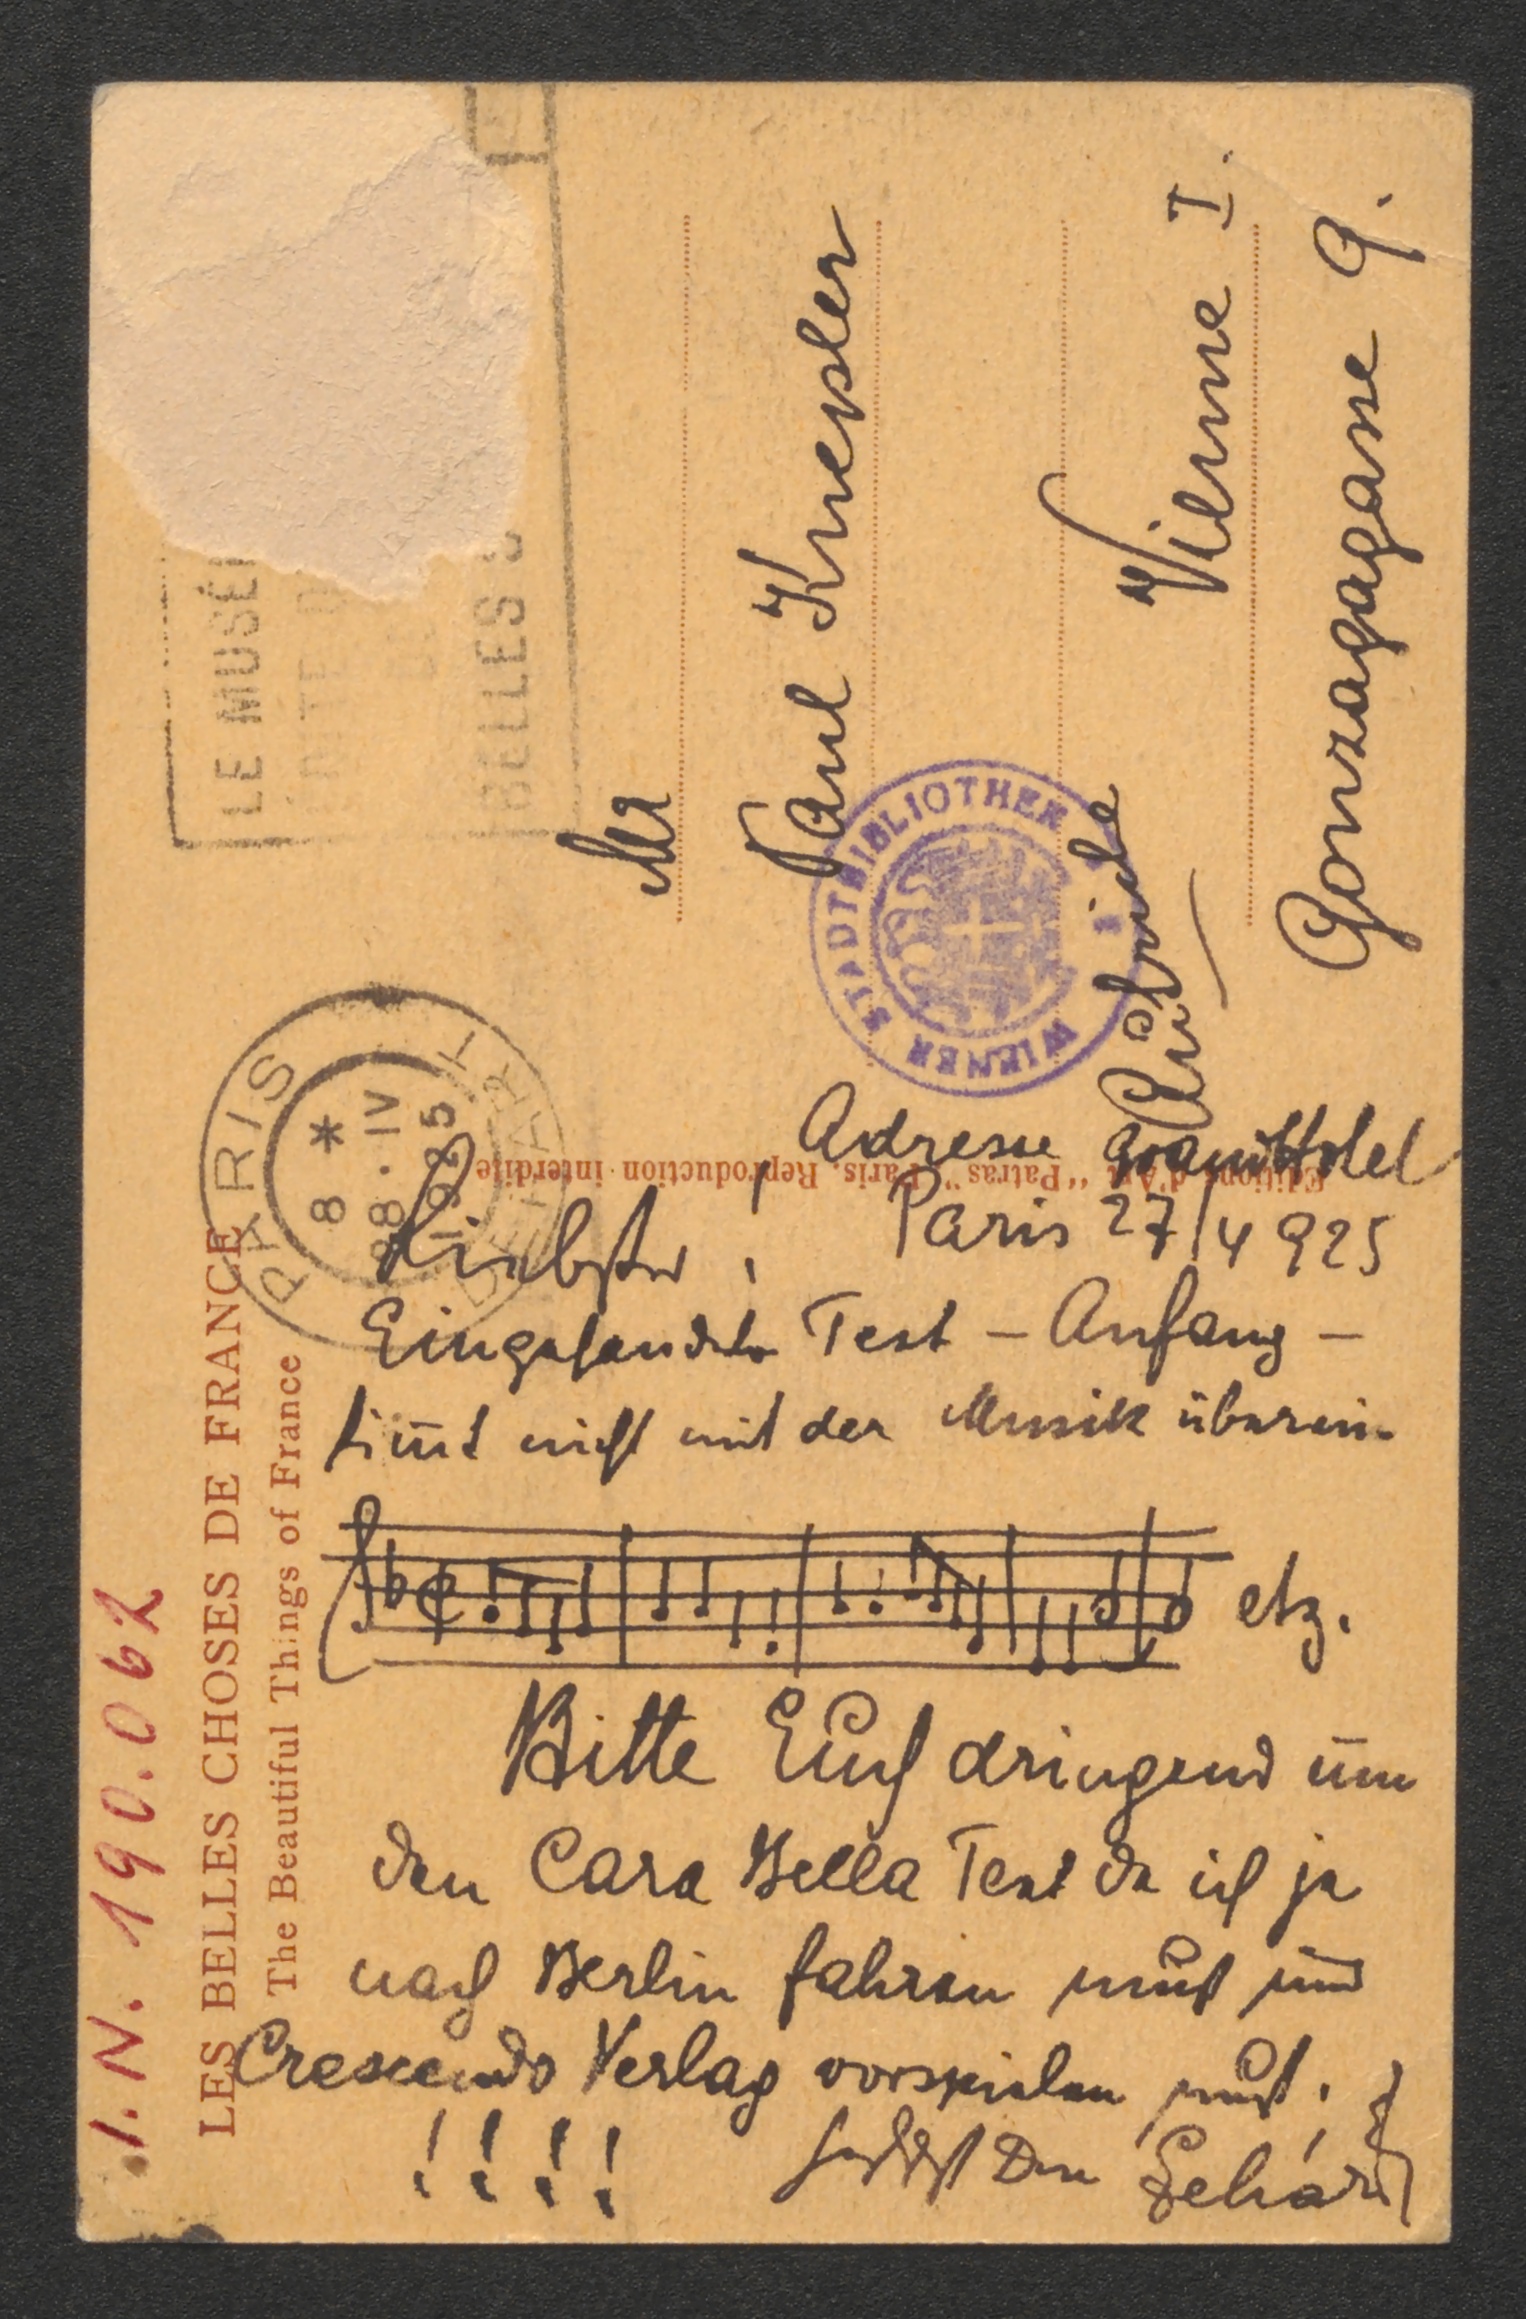 I.N. 190.062
LES BELLES CHOSES DE FRANCE
The Beautiful Things of France
PARIS
8 *
28 · IV
1925
DEPART
LE MUSÉ
BELLES
Mr
Paul Knepler
Vienne I.
Gonzagagasse 9.
Autriche
WIENER STADTBIBLIOTHEK
Editions d'Art "Patras" Paris. Reproduction interdite
Adresse Grand Hotel
Paris 27/4 925
Liebster!
Eingesandter Text – Anfang –
stim̄t nicht mit der Musik überein.
etz.
Bitte Euch dringend um
den Cara Bella Text da ich ja
nach Berlin fahren muß und
Crescendo Verlag vorspielen muß.
!!!! Dein Lehár